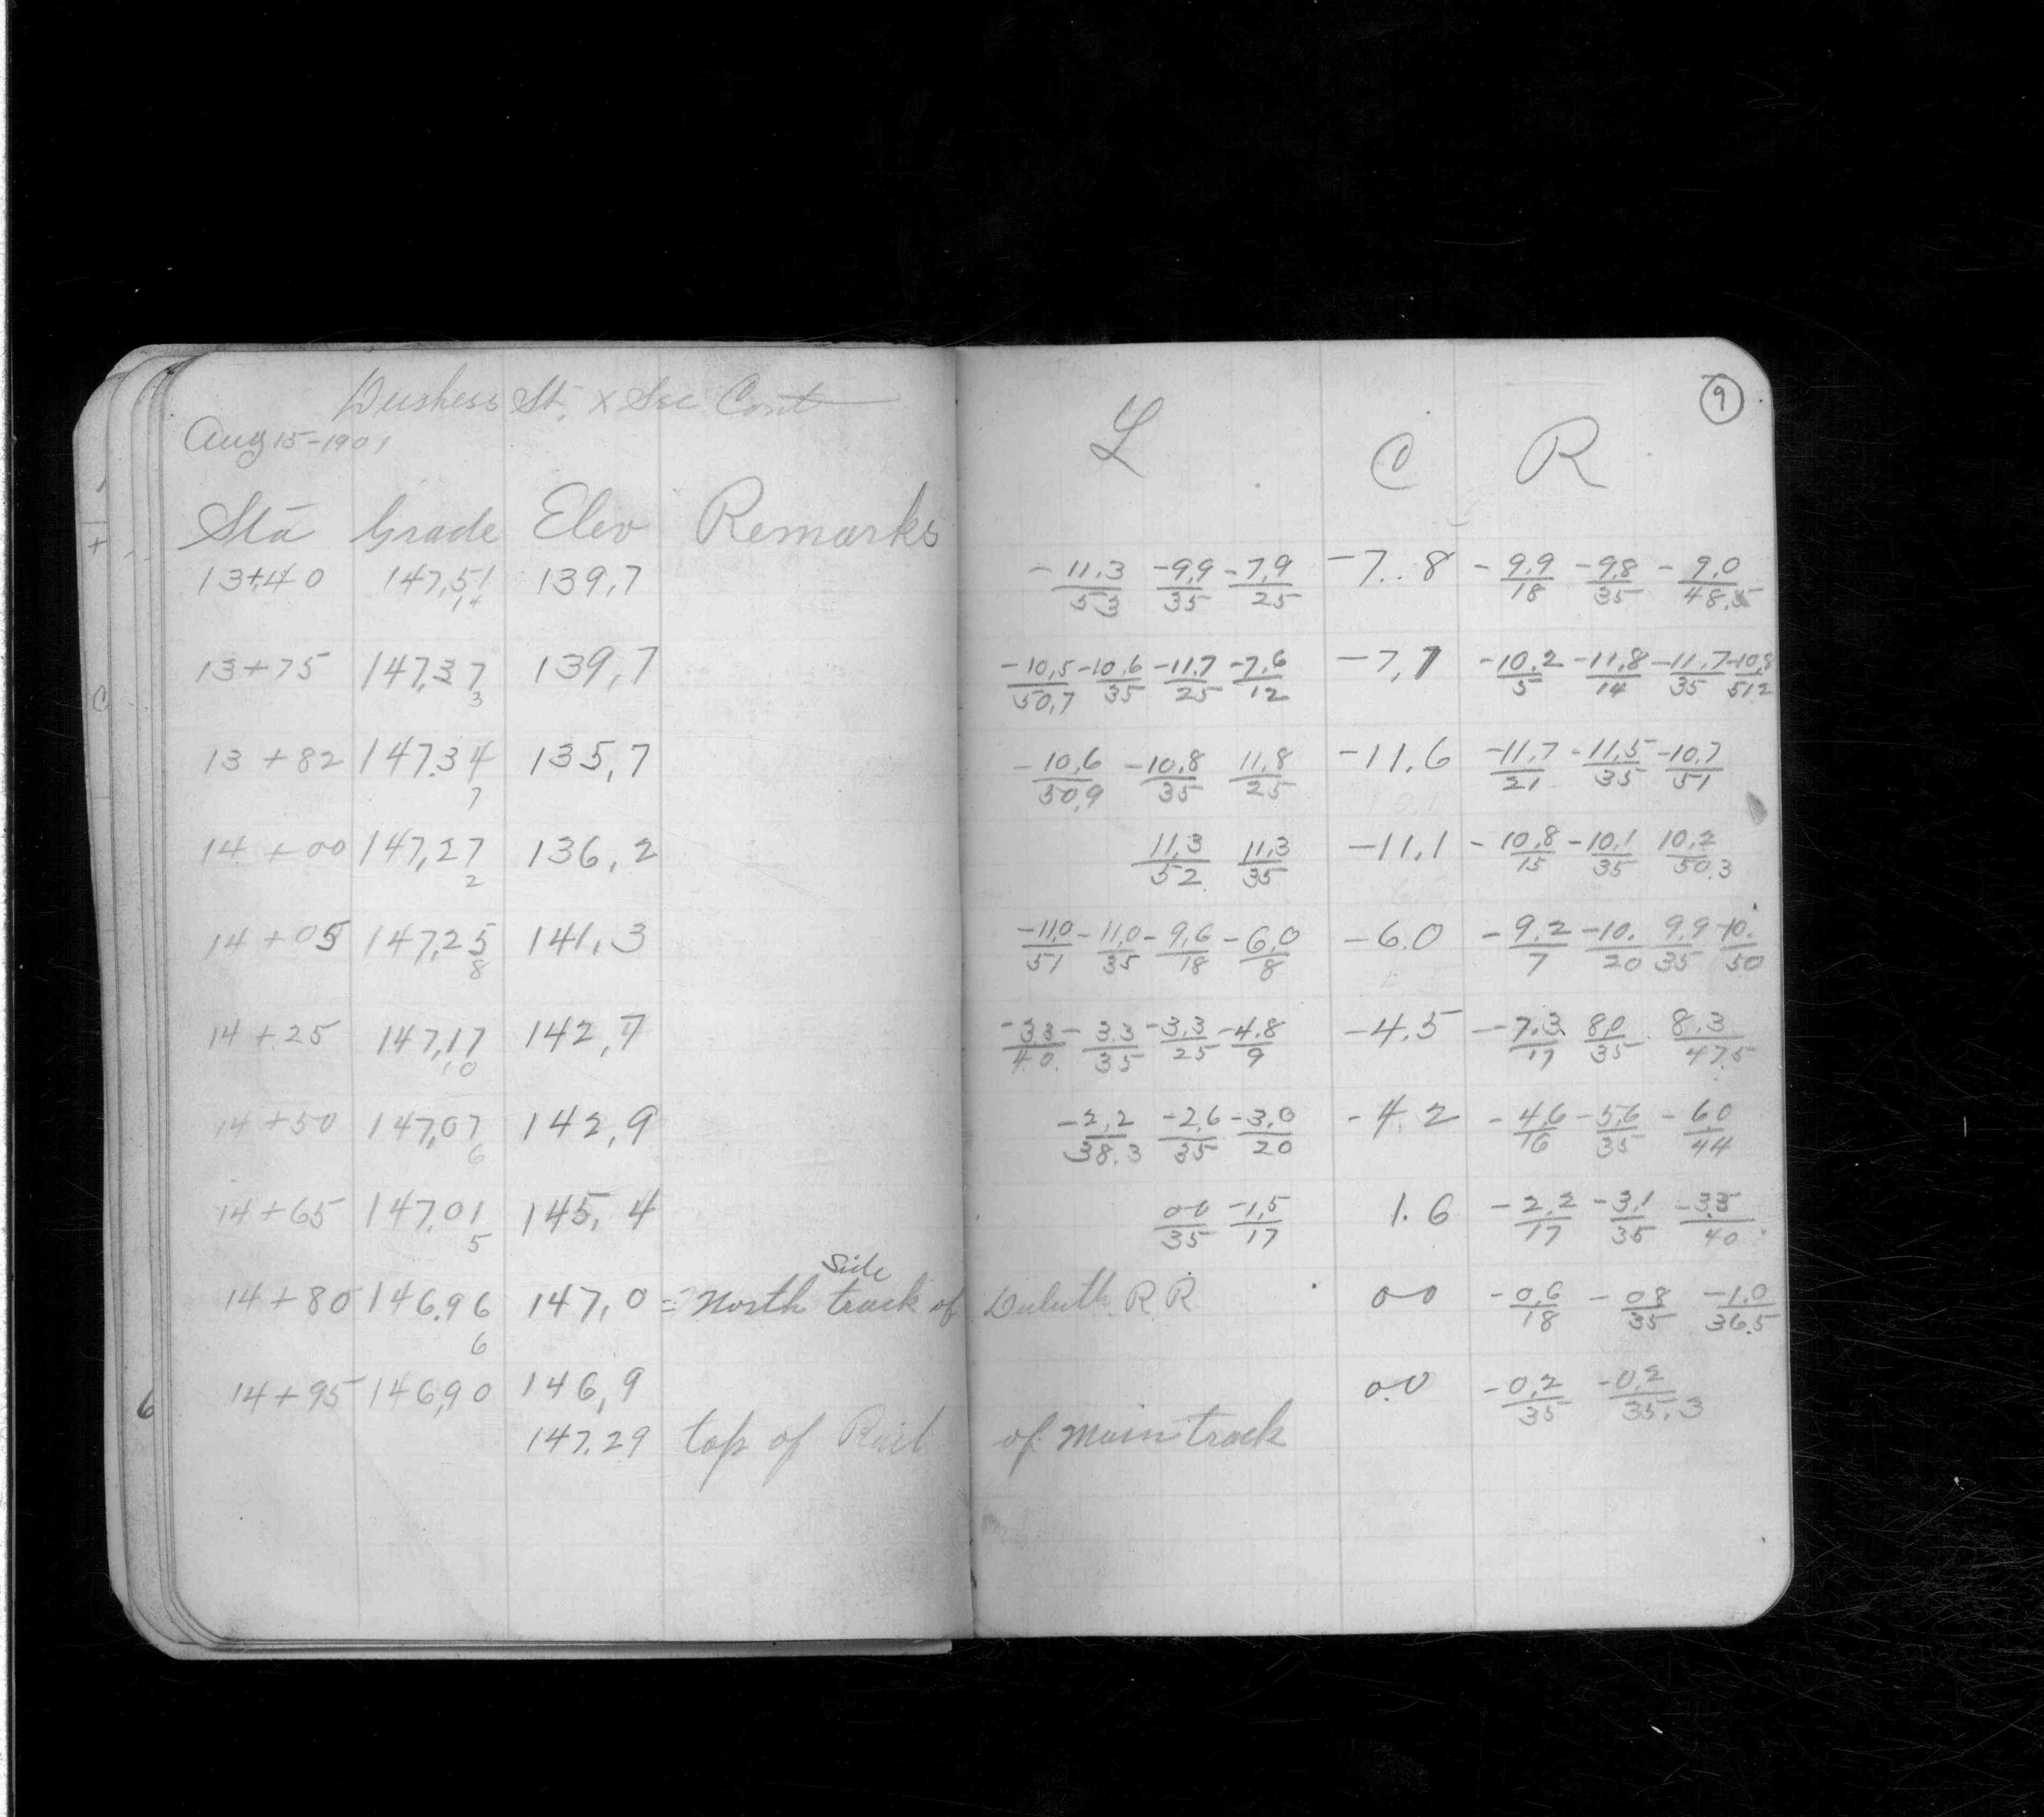 Dushess St. x Sec Cont
Aug 15-1901
9
L C R
Sta Grade Elev Remarks
13+40 147,51 139,7 -11.3/53 -9,9/35 -7,9/25 -7.8 -9,9/18 -9,8/35 -9,0/48.5
14
13+75 147,37 139,7 -10,5/50,7 -10,6/35 -11.7/25 -7,6/12 -7,7 -10.2/5 -11,8/14 -11,7/35 -10,8/51.2
3
13+82 147.34 135,7 -10,6/50,9 -10,8/35 11,8/25 -11.6 -11,7/21 -11,5/35 -10,7/51
7
14+00 147,27 136,2 11,3/52 11,3/35 -11,1 -10,8/15 -10,1/35 10,2/50.3
2
14+05 147,25 141,3 -11,0/51 -11,0/35 -9,6/18 -6,0/8 -6.0 -9,2/7 -10./20 9,9/35 10./50
8
14+25 147,17 142,7 -3,3/40. -3.3/35 -3,3/25 -4.8/9 -4.5 -7.3/17 8,0/35 8.3/47.5
10
14+50 147,07 142,9 -2,2/38.3 -2,6/35 -3,0/20 -4.2 -4,6/16 -5,6/35 -6,0/44
6
14+65 147.01 145,4 00/35 -1,5/17 1.6 -2,2/17 -3,1/35 -3.3/40
5
Side
14+80 146.96 147,0 = North track of Duluth R R 00 -0,6/18 -08/35 -1.0/36.5
6
14+95 146,90 146,9 0.0 -0,2/35 -0,2/35.3
147.29 top of Rail of Main track